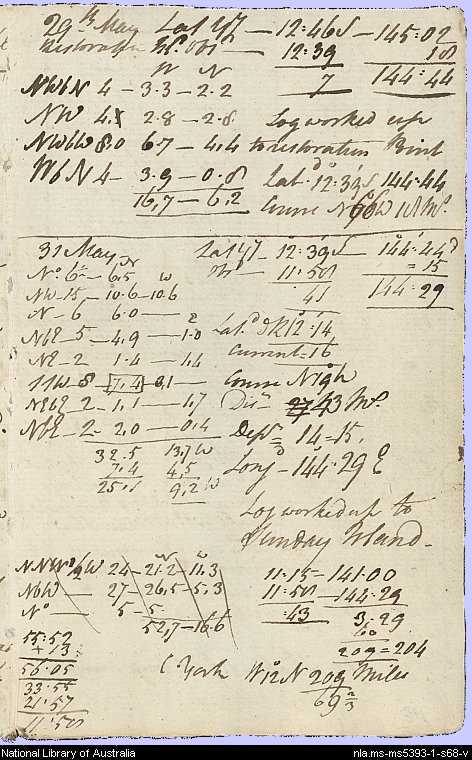 29th May Lat 277 — 12:46S — 145:02
Restoration Id Obs — 12:39 18
W N 7 144:44
NWbN 4 — 3.3 — 2.2
NW 4.x 2.8 — 2.8 Log worked up
NWbW 8.0 6.7 — 4.4 to restoration Point
WbN 4 — 3.9 — 0.8 Lat d 12:39S 144:44
16,7 — 6,2 Course N70W 18 Ms.
31 May Lat 277 — 12:39S — 144:44
No. 6 — 6.5 11:58 = 15
NW — 15 — 10.6 — 10.6 41 144:29
N — 6 6.0 —
NbE — 5 — 4,9 — 1.0 Lat. d DR 12:14
NE — 2 1.4 — 1,4 Current = 16
SSW — 8 — 7,4 — 3,1 — Course Nigh
NEbE — 2 — 1,1 — 1,7 Dis 43 Ms.
NbE — 2 — 2,0 — 0,4 Depr = 14 = 15,
32.5 13,7 W Long — 144:29 E
7,4 4,5
25,1 9,2 W
Log worked up to
Sunday Island.
NNW½W 24 — 21.2 — 11.3 11:15 — 141.00
NbW — 27 — 26,5 — 5,3 11:58 — 144.29
No — 5 — 5 :43 3,29
52,7 — 16.6 60
55:52 209 = 204
+ 13
56.05 C York W12N 209 Miles
33.55 69 2/3
21:57
11:58
National Library of Australia nla.ms-ms5393-1-s68-v